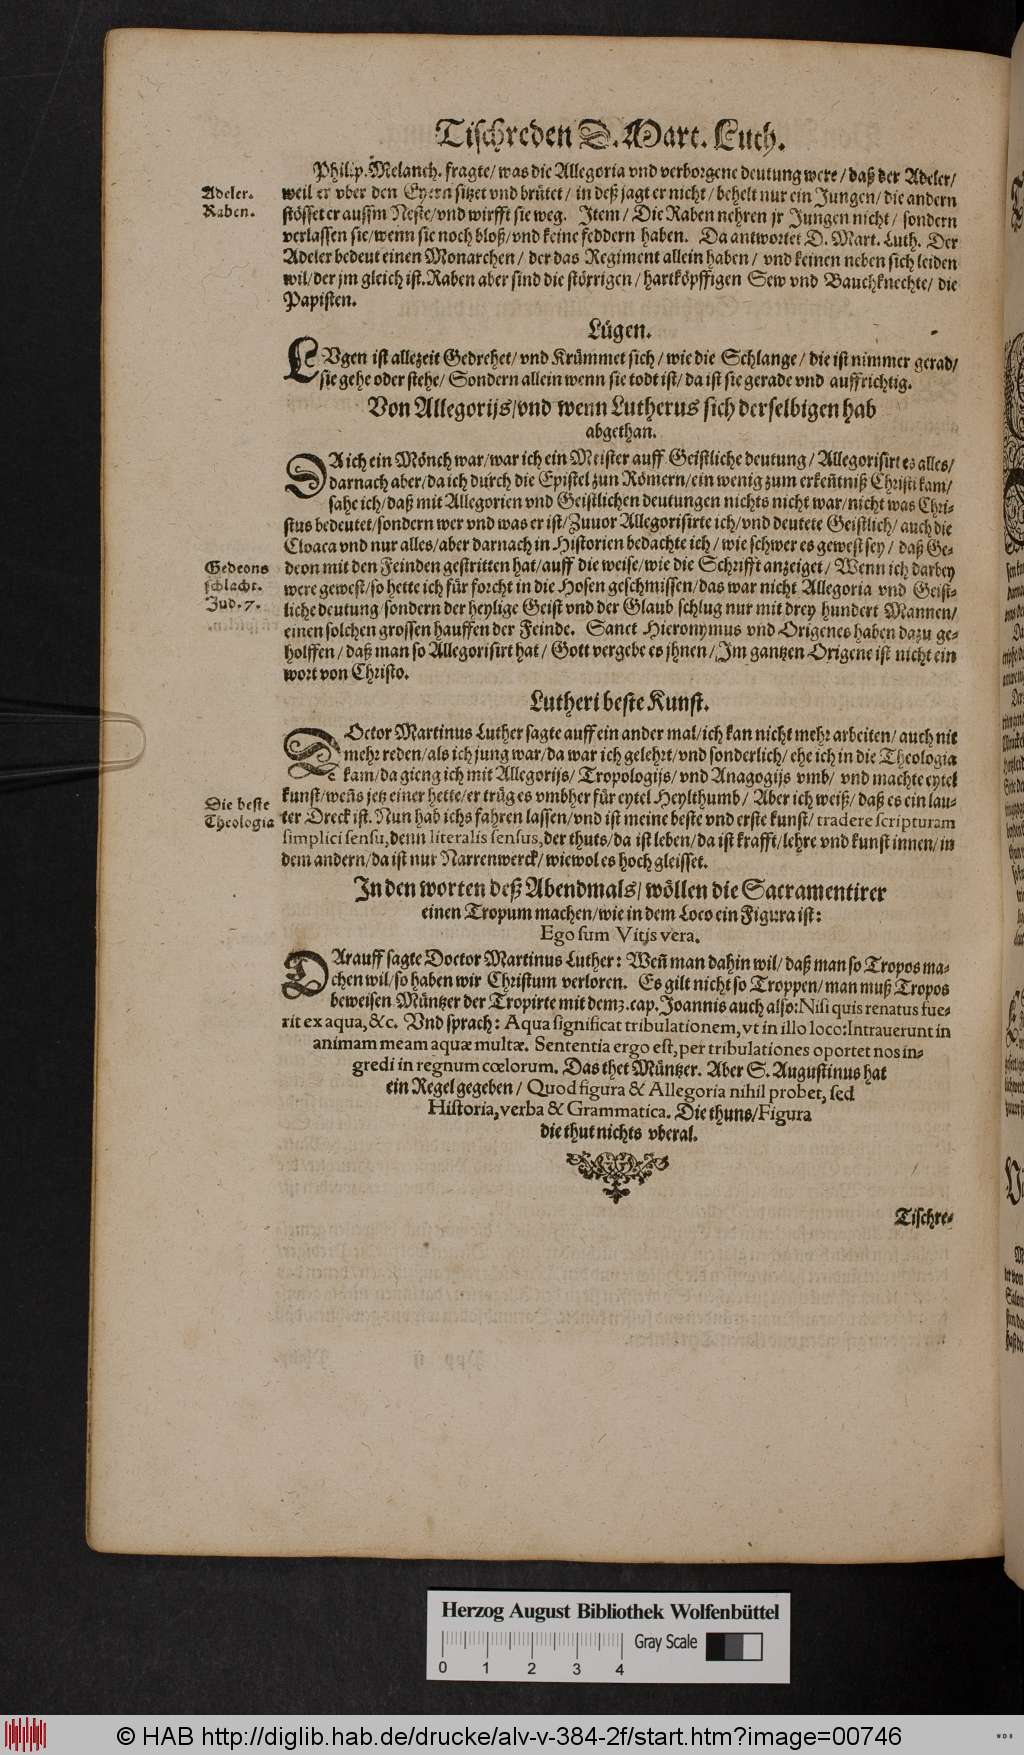 Tischreden D. Mart. Luth.
Philip. Melanch. fragte/ was die Allegoria vnd verborgene deutung were/ daß der Adeler/
Adeler.
weil er vber den Eyern sitzet vnd brütet/ in deß jagt er nicht/ behelt nur ein Jungen/ die andern
Raben.
stösset er aussm Neste/ vnd wirfft sie weg. Item/ Die Raben nehren jr Jungen nicht/ sondern
verlassen sie/ wenn sie noch bloß/ vnd keine feddern haben. Da antwortet D. Mart. Luth. Der
Adeler bedeut einen Monarchen/ der das Regiment allein haben/ vnd keinen neben sich leiden
wil/ der jm gleich ist. Raben aber sind die störrigen/ hartköpffigen Sew vnd Bauchknechte/ die
Papisten.
Lügen.
LVgen ist allezeit Gedrehet/ vnd Krümmet sich/ wie die Schlange/ die ist nimmer gerad/
sie gehe oder stehe/ Sondern allein wenn sie todt ist/ da ist sie gerade vnd auffrichtig.
Von Allegorijs/ vnd wenn Lutherus sich derselbigen hab
abgethan.
DA ich ein Mönch war/ war ich ein Meister auff Geistliche deutung/ Allegorisirt es alles/
darnach aber/ da ich durch die Epistel zun Römern/ ein wenig zum erkeñtniß Christi kam/
sahe ich/ daß mit Allegorien vnd Geistlichen deutungen nichts nicht war/ nicht was Chri-
stus bedeutet/ sondern wer vnd was er ist/ Zuuor Allegorisirte ich/ vnd deutete Geistlich/ auch die
Cloaca vnd nur alles/ aber darnach in Historien bedachte ich/ wie schwer es gewest sey/ daß Ge-
Gedeons
deon mit den Feinden gestritten hat/ auff die weise/ wie die Schrifft anzeiget/ Wenn ich darbey
schlacht.
were gewest/ so hette ich für forcht in die Hosen geschmissen/ das war nicht Allegoria vnd Geist-
Jud. 7.
liche deutung/ sondern der heylige Geist vnd der Glaub schlug nur mit drey hundert Mannen/
einen solchen grossen hauffen der Feinde. Sanct Hieronymus vnd Origenes haben dazu ge-
holffen/ daß man so Allegorisirt hat/ Gott vergebe es jhnen/ Im gantzen Origene ist nicht ein
wort von Christo.
Lutheri beste Kunst.
DOctor Martinus Luther sagte auff ein ander mal/ ich kan nicht mehr arbeiten/ auch nit
mehr reden/ als ich jung war/ da war ich gelehrt/ vnd sonderlich/ ehe ich in die Theologia
kam/ da gieng ich mit Allegorijs/ Tropologijs/ vnd Anagogijs vmb/ vnd machte eytel
kunst/ weñs jetz einer hette/ er trüg es vmbher für eytel Heylthumb/ Aber ich weiß/ daß es ein lau-
Die beste
ter Dreck ist. Nun hab ichs fahren lassen/ vnd ist meine beste vnd erste kunst/ tradere scripturam
Theologia
simplici sensu, denn literalis sensus, der thuts/ da ist leben/ da ist krafft/ lehre vnd kunst innen/ in
dem andern/ da ist nur Narrenwerck/ wiewol es hoch gleisset.
In den worten deß Abendmals/ wöllen die Sacramentirer
einen Tropum machen/ wie in dem Loco ein Figura ist:
Ego sum Vitis vera.
DArauff sagte Doctor Martinus Luther: Weñ man dahin wil/ daß man so Tropos ma-
chen wil/ so haben wir Christum verloren. Es gilt nicht so Troppen/ man muß Tropos
beweisen Müntzer der Tropirte mit dem 3. cap. Joannis auch also: Nisi quis renatus fue-
rit ex aqua, &c. Vnd sprach: Aqua significat tribulationem, vt in illo loco: Intrauerunt in
animam meam aquæ multæ. Sententia ergo est, per tribulationes oportet nos in-
gredi in regnum cœlorum. Das thet Müntzer. Aber S. Augustinus hat
ein Regel gegeben/ Quod figura & Allegoria nihil probet, sed
Historia, verba & Grammatica. Die thuns/ Figura
die thut nichts vberal.
Tischre-
Herzog August Bibliothek Wolfenbüttel
Gray Scale
0 1 2 3 4
© HAB http://diglib.hab.de/drucke/alv-v-384-2f/start.htm?image=00746